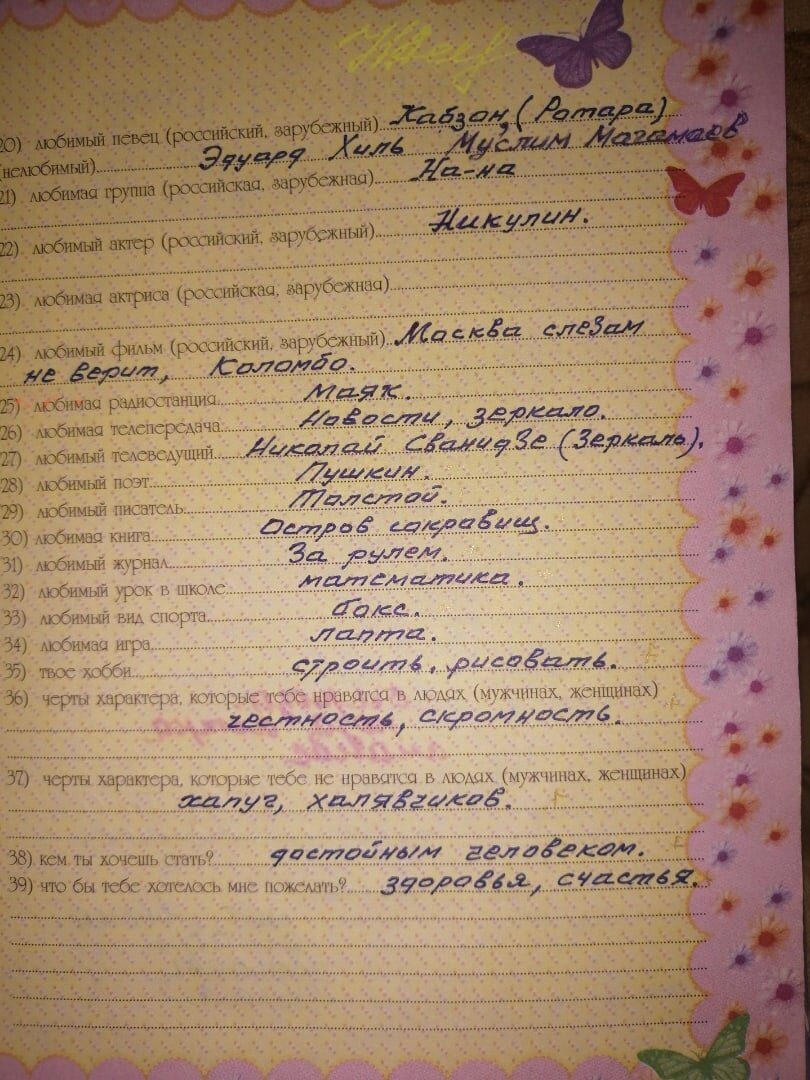 20) любимый певец (российский, зарубежный) Кабзон, (Ротара)
(нелюбимый) Эдуард Хиль Муслим Магамаев
21) любимая группа (российская, зарубежная) На-на
22) любимый актер (российский, зарубежный) Никулин.
23) любимая актриса (российская, зарубежная)
24) любимый фильм (российский, зарубежный) Москва слезам
не верит, Коломбо.
25) любимая радиостанция Маяк.
26) любимая телепередача Новости, зеркало.
27) любимый телеведущий Николай Сванидзе (Зеркаль).
28) любимый поэт Пушкин.
29) любимый писатель Толстой.
30) любимая книга Остров сакравищ.
31) любимый журнал За рулем.
32) любимый урок в школе математика.
33) любимый вид спорта бокс.
34) любимая игра лапта.
35) твое хобби строить, рисовать.
36) черты характера, которые тебе нравятся в людях (мужчинах, женщинах)
честность, скромность.
37) черты характера, которые тебе не нравятся в людях (мужчинах, женщинах)
хапуг, халявчиков.
38) кем ты хочешь стать? достойным человеком.
39) что бы тебе хотелось мне пожелать? здоровья, счастья.